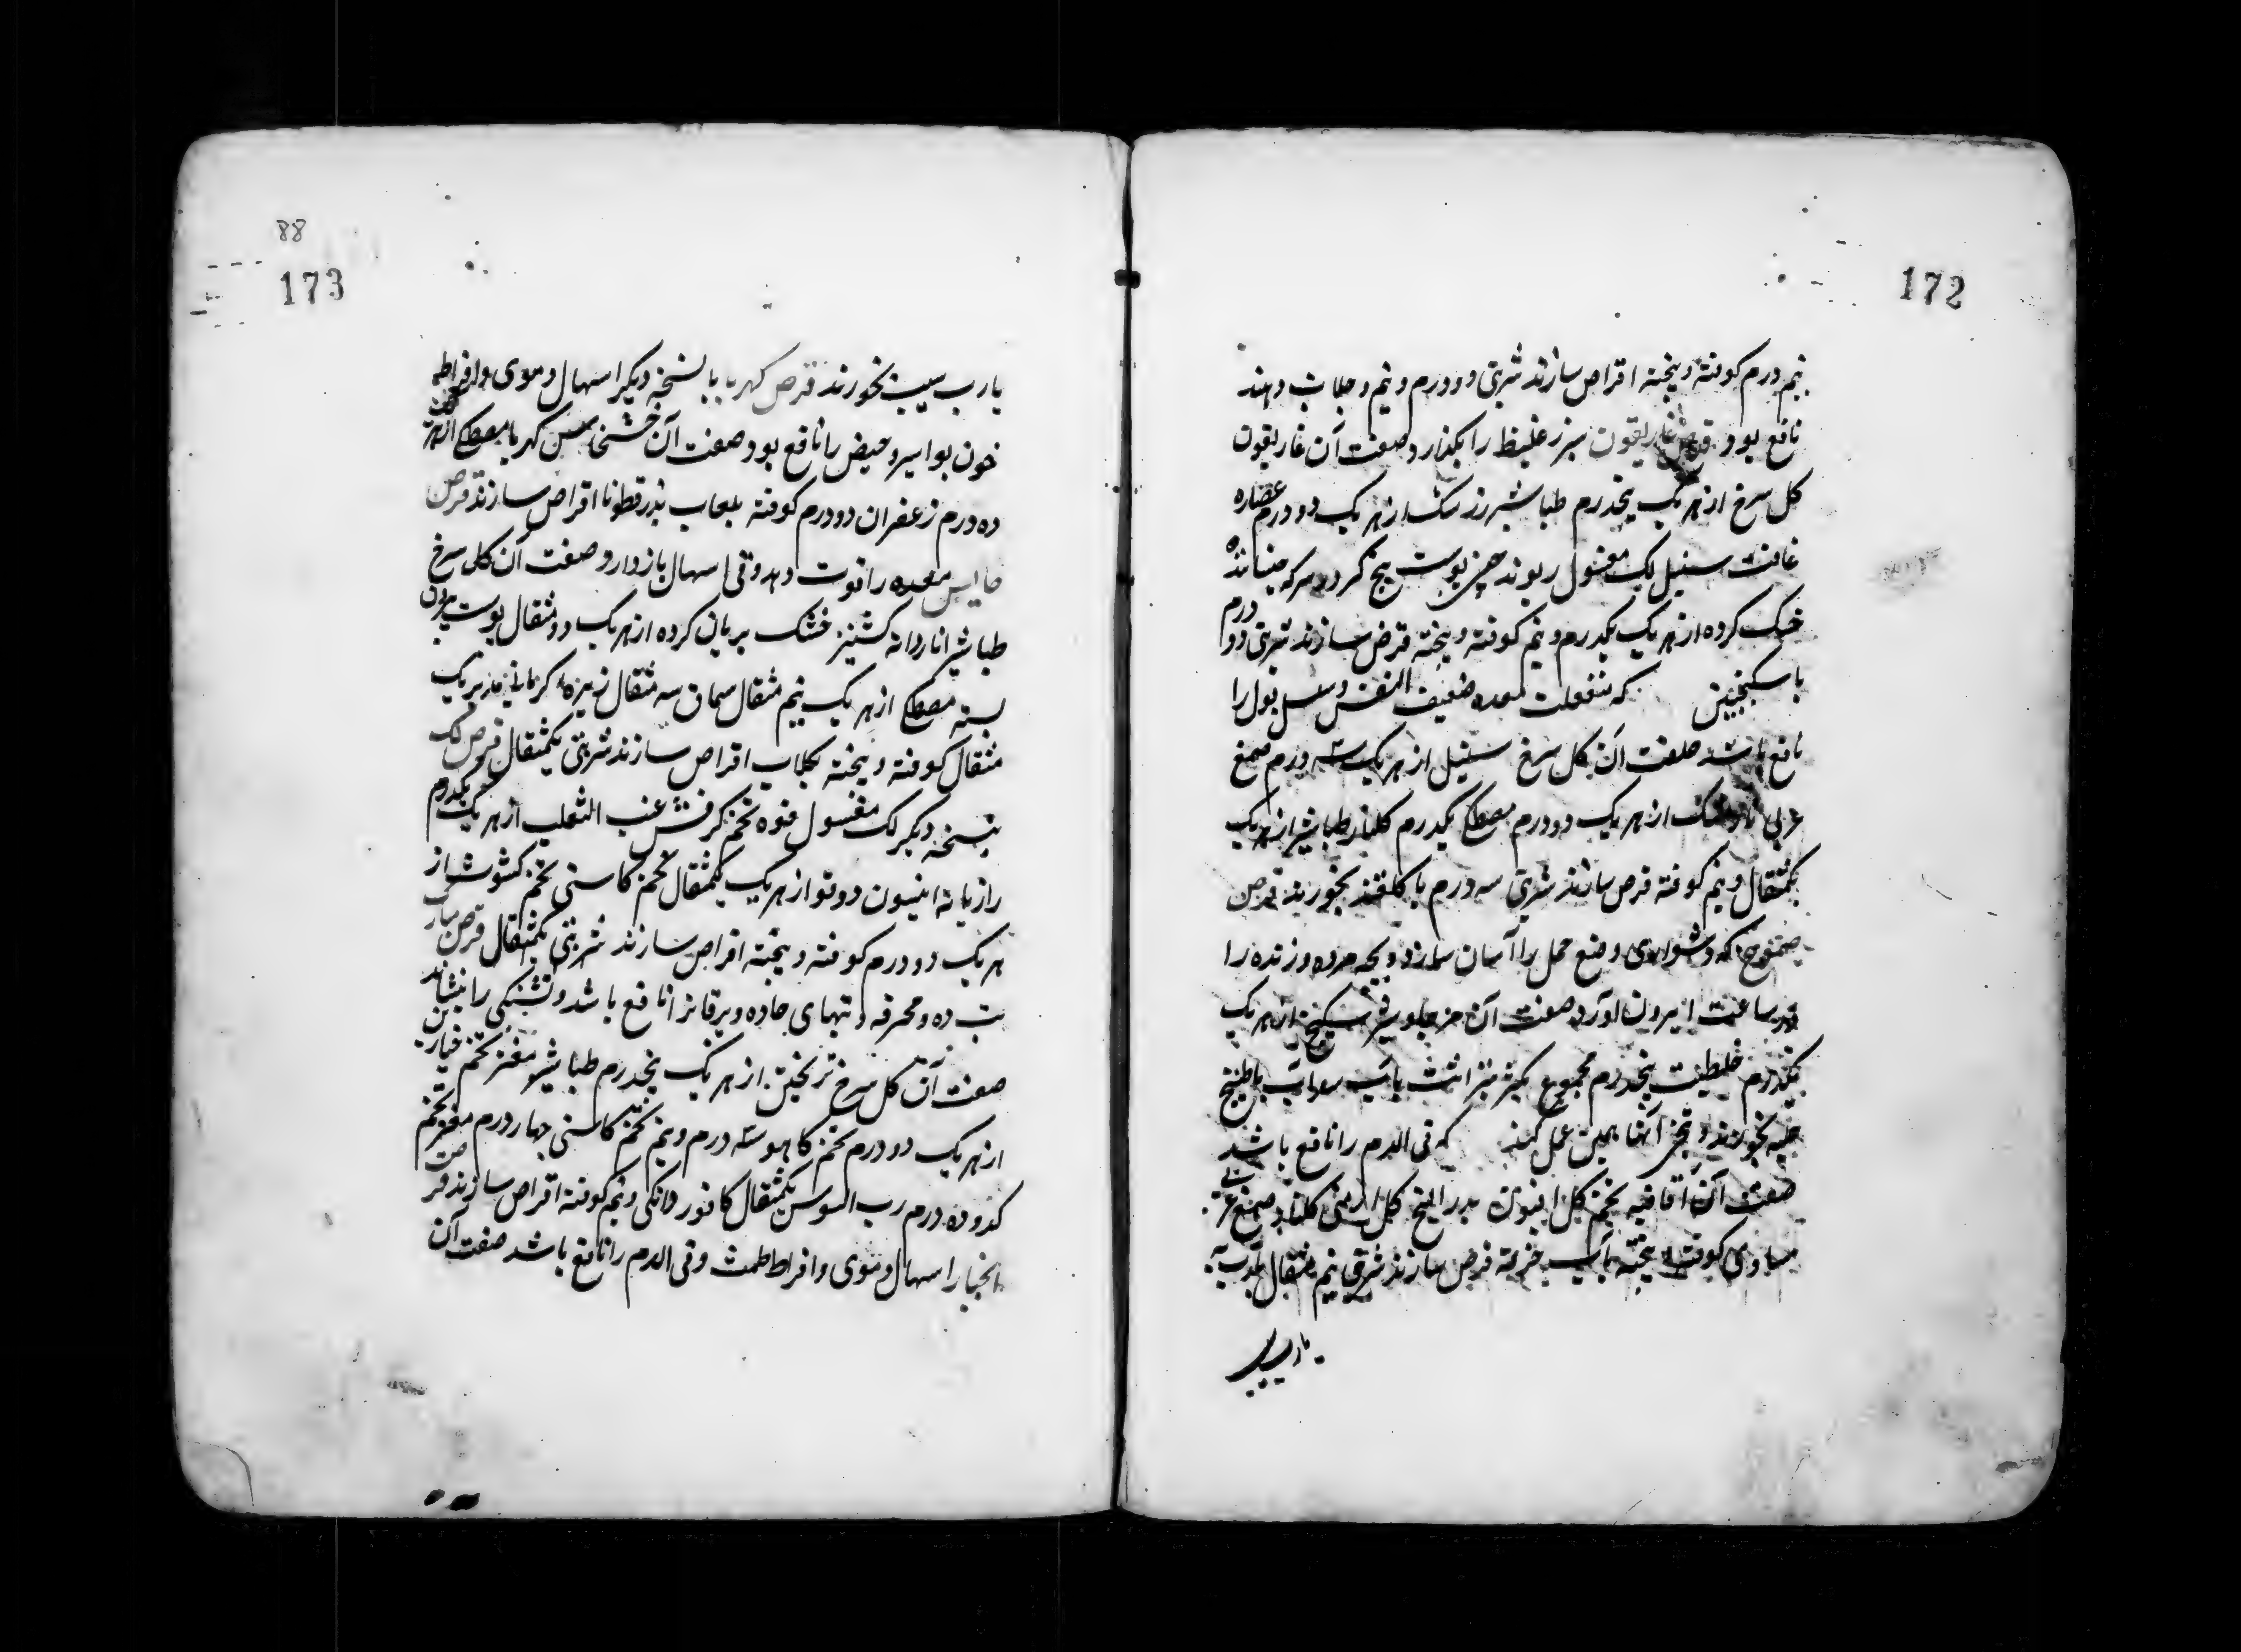 172
نیم درم کوفته و بیخته اقراص سازند شربتی دو درم و نیم و جلاب دهند
نافع بود قرص غاریقون سپرز غلیظ را بگذارد صفت آن غاریقون
کل سرخ از هر یک پنجدرم طباشیر زرشک از هر یک دو درم عصاره
غافت سنبل لک مغسول ریوند چینی پوست بیخ کبر در سرکه خیسانده
خشک کرده از هر یک یکدرم و نیم کوفته و بیخته قرص سازند شربتی دو درم
با سکنجبین که منفعلت معده ضعیف النفس و سلس بول را
نافع باشد صفت آن کل سرخ سنبل از هر یک سه درم صمغ
عربی از هر یک دو درم مصطکی یکدرم کلنار طباشیر از هر یک
یکمثقال و نیم کوفته قرص سازند شربتی سه درم با کلقند بخورند قرص
که دشواری وضع حمل را آسان سازد و بچه مرده و زنده را
در ساعت بیرون آورد صفت آن مر جاوشیر سکبینج از هر یک
یکدرم حلتیت پنجدرم مجموع با طبیخ
حلبه بخورند و آنها همین عمل کند که قی الدم را نافع باشد
صفت آن اقاقیه تخم کل افیون بذر البنج کل ارمنی کلنار صمغ عربی
مساوی کوفته و بیخته بآب خرفه قرص سازند شربتی نیم مثقال
یا رب سیب
88
173
یا رب سیب بخورند قرص کهربا بالنسخه دیکر اسهال دموی و افراط
خون بواسیر و حیض را نافع بود صفت آن کهربا مصطکی از هر
ده درم زعفران دو درم کوفته بلعاب بذر قطونا اقراص سازند قرص
حابس معده را قوت دهد و قی اسهال باز دارد صفت آن کل سرخ
طباشیر اناردانه کشنیز خشک بریان کرده از هر یک دو مثقال پوست بیرون
پسته مصطکی از هر یک نیم مثقال سماق سه مثقال زیره کرمانی مدبر یک
مثقال کوفته و بیخته بکلاب اقراص سازند شربتی یکمثقال قرص لک
بنسخه دیکر لک مغسول فوه تخم کرفش عنب الثعلب از هر یک یکدرم
رازیانه انیسون دوقو از هر یک یکمثقال تخم کاسنی تخم کشوث از
هر یک دو درم کوفته و بیخته اقراص سازند شربتی یکمثقال قرص مبارک
تب ده و محرقه و تبهای حاده و یرقانرا نافع باشد و تشنکی را بنشاند
صفت آن کل سرخ ترنجبین از هر یک پنجدرم طباشیر مغز تخم خیارین
از هر یک دو درم تخم کاهو سه درم و نیم تخم کاسنی چهار درم مغز تخم
کدو ده درم رب السوس یکمثقال کافور دانکی و نیم کوفته اقراص سازند قرص
انجبار اسهال دموی و افراط طمث و قی الدم را نافع باشد صفت آن